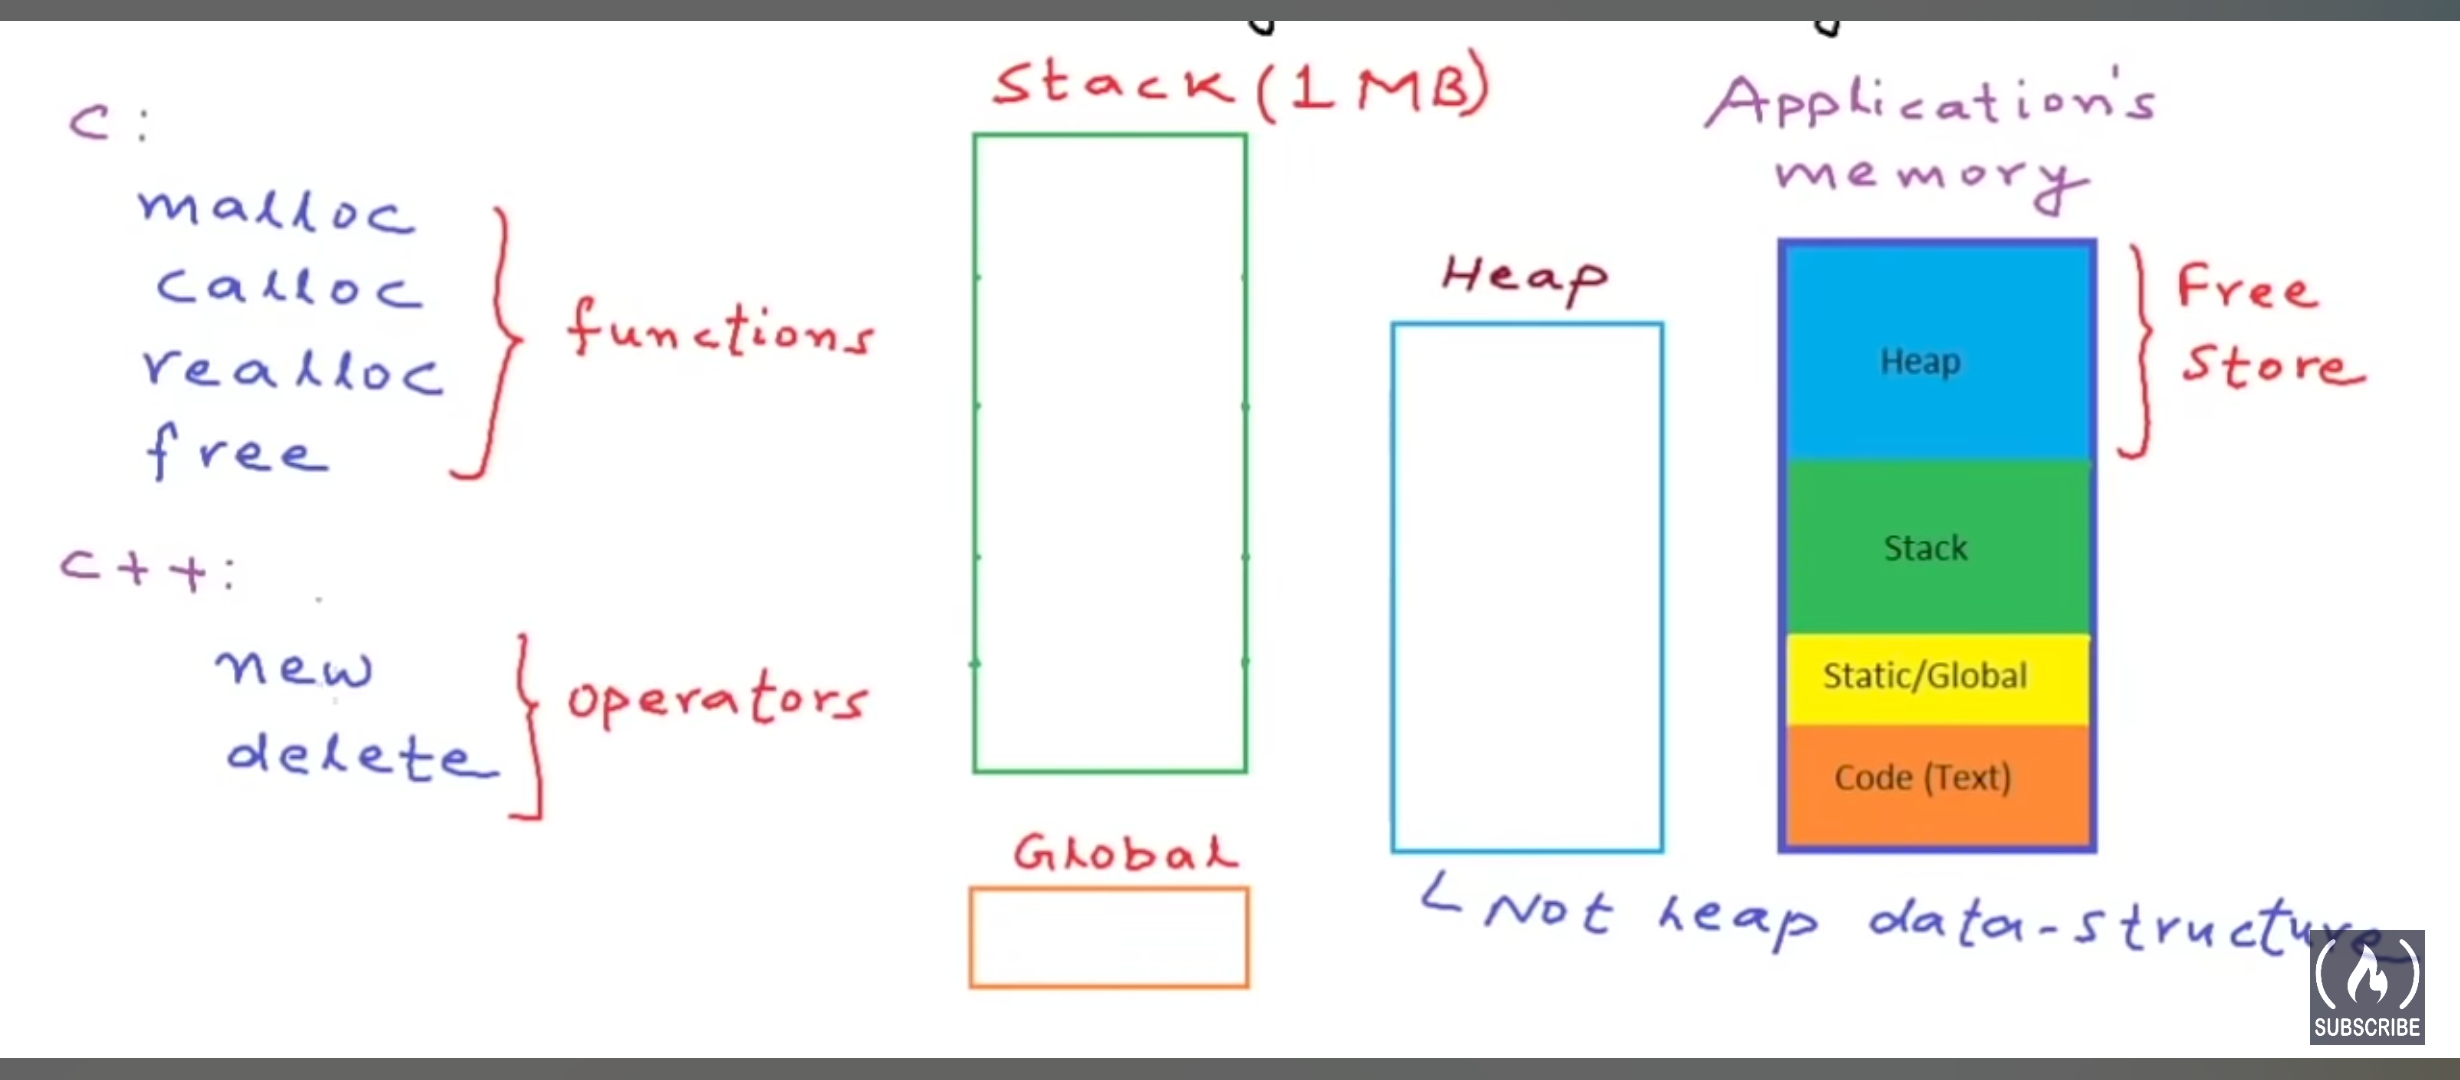 C:
malloc
calloc
realloc
free
functions
C++:
new
delete
operators
Stack (1 MB)
Global
Heap
Not heap data-structure
Application's
memory
Heap
Stack
Static/Global
Code (Text)
Free
Store
SUBSCRIBE